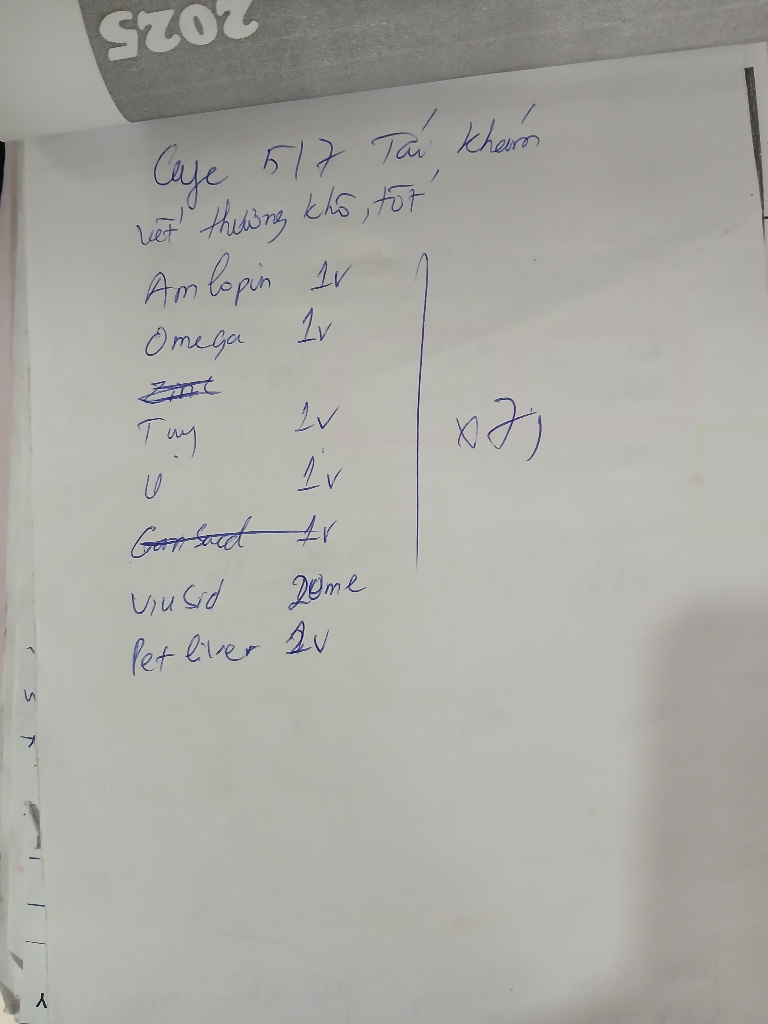 2025
Caje 5/7 Tái khám
vết thương khô, tốt
Amlopin 1v
Omega 1v
Zinc
Tuy 1v
U 1v
x 7j
1v
Viusid 20me
Pet liver 2v